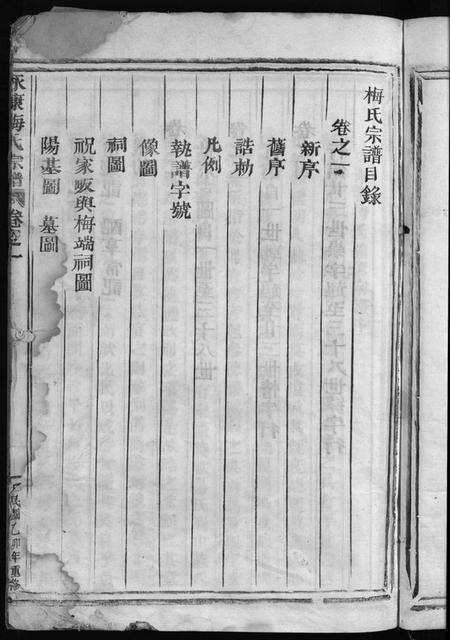 梅氏宗譜目錄
卷之一
新序
舊序
誥勅
凡例
執譜字號
像圖
祠圖
祝家畈與梅端祠圖
陽基圖 墓圖
永康梅氏宗譜 卷之一
民國乙卯年重修